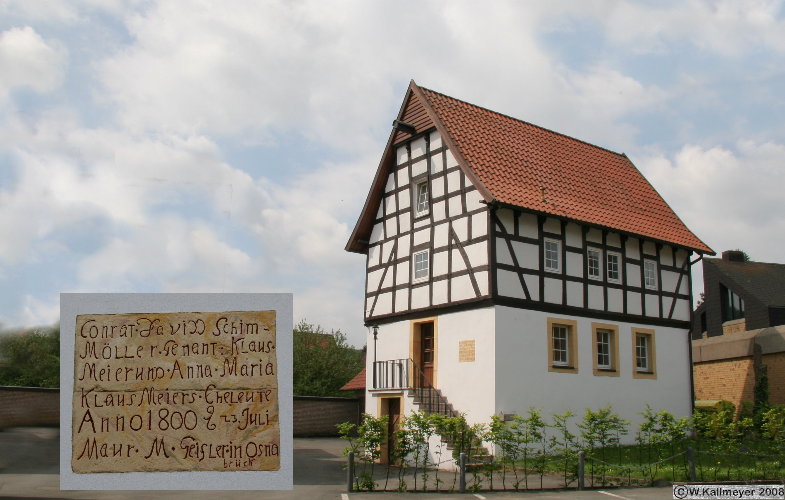 Conrat Davixx Schim-
Möller. Genant: Klaus
Meier uno Anna. Maria
Klaus Meiers. Eheleute
Anno 1800 & 23 Juli
Maur. M. Geislerin Osna
brück
©W.Kallmeyer 2008